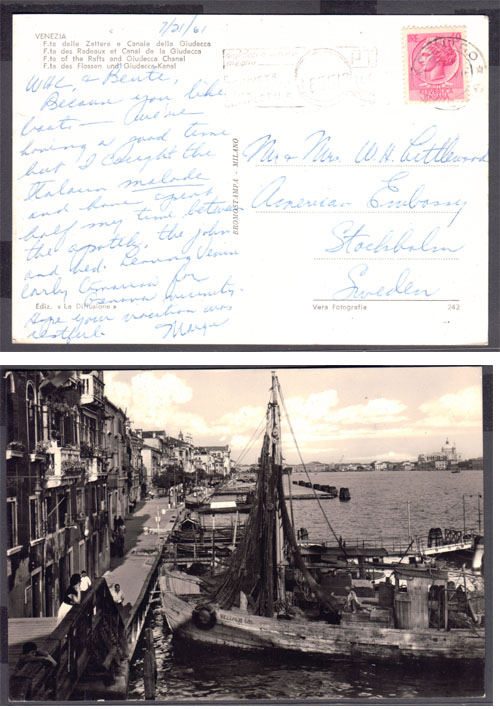 7/21/61
VENEZIA
F.ta delle Zattere e Canale della Giudecca
F.ta des Radeaux et Canal de la Giudecca
F.ta of the Rafts and Giudecca Chanel
F.ta des Flossen und Giudecca-Kanal
WHL, & Bente,
Because you like
boats — We're
having a good time
but I caught the
Italian malade
and have spent
half my time between
the apotek, the john
and bed. Leaving Venice
early tomorrow for
Genova vicinity.
Hope your vacation was
restful. Marge
Ediz. «La Diffusione»
BROMOSTAMPA - MILANO
Mr & Mrs. W. H. Littlewood
American Embassy
Stockholm
Sweden
Vera Fotografia
242